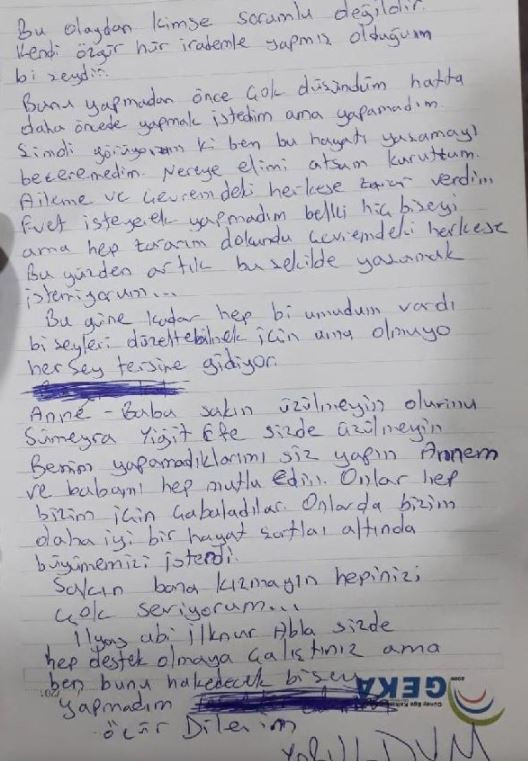 Bu olaydan kimse sorumlu değildir.
Kendi özgür hür irademle yapmış olduğum
bi şeydir.
Bunu yapmadan önce çok düşündüm hatta
daha öncede yapmak istedim ama yapamadım.
Şimdi görüyorum ki ben bu hayatı yaşamayı
beceremedim. Nereye elimi atsam kuruttum.
Aileme ve çevremdeki herkese zarar verdim
Evet isteyerek yapmadım belki hiç bişeyi
ama hep zararım dokundu çevremdeki herkese
Bu yüzden artık bu şekilde yaşamak
istemiyorum...
Bu güne kadar hep bi umudum vardı
bi şeyleri düzeltebilmek için ama olmuyo
her şey tersine gidiyor.
Anne - Baba sakın üzülmeyin olurmu
Sümeyra Yiğit Efe sizde üzülmeyin
Benim yapamadıklarımı siz yapın Annem
ve babamı hep mutlu edin. Onlar hep
bizim için çabaladılar. Onlarda bizim
daha iyi bir hayat şartları altında
büyümemizi istedi.
Sakın bana kızmayın hepinizi
çok seviyorum...
İlyas abi İlknur Abla sizde
hep destek olmaya çalıştınız ama
ben bunu hakedecek bişey
GEKA
yapmadım
özür Dilerim
YORULDUM